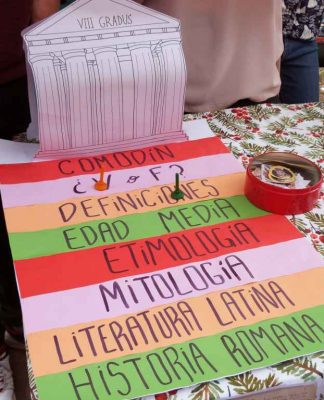 VIII GRADUS
COMODÍN
¿V o F?
DEFINICIONES
EDAD MEDIA
ETIMOLOGÍA
MITOLOGÍA
LITERATURA LATINA
HISTORIA ROMANA